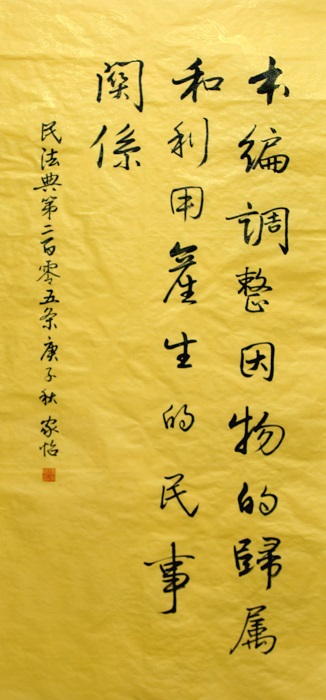 本编調整因物的歸属
和利用產生的民事
関係
民法典第二百零五条庚子秋家怡